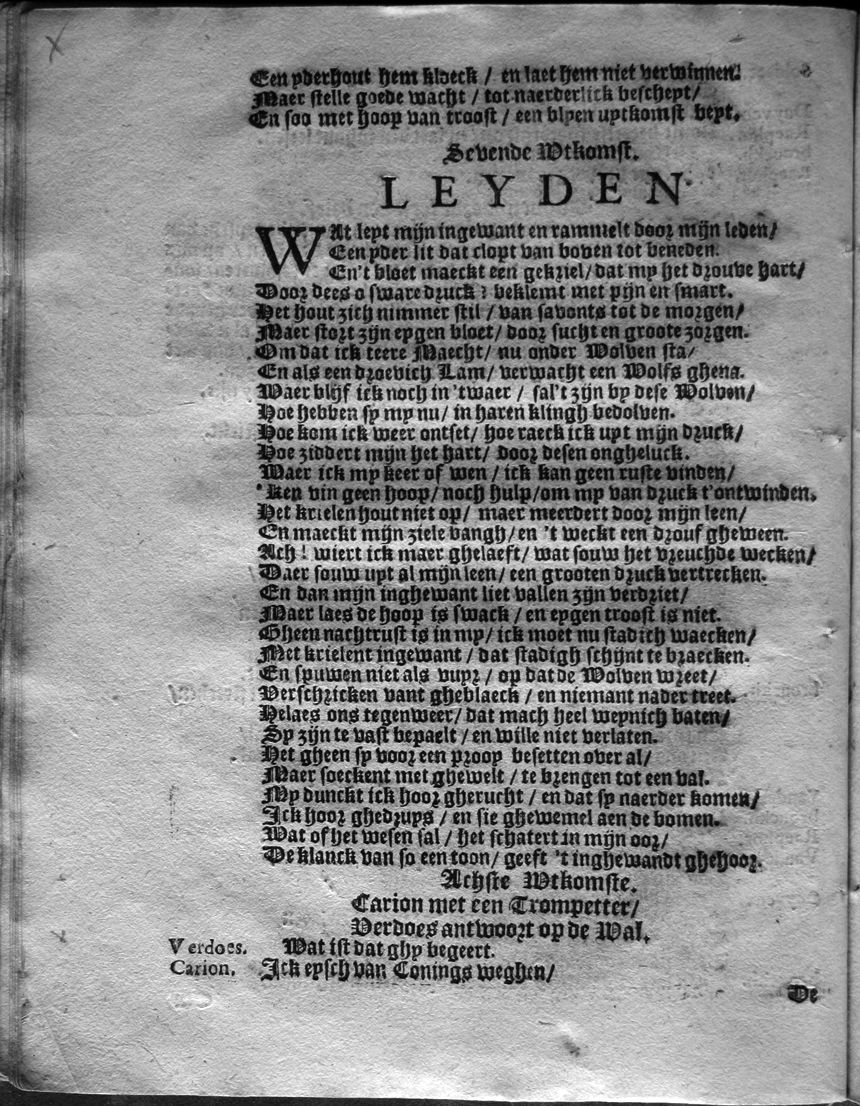 Een yderhout hem kloeck / en laet hem niet verwinnen!
Maer stelle goede wacht / tot naerderlick bescheyt /
En soo met hoop van troost / een blyen uytkomst beyt.
Sevende Wtkomst.
LEYDEN
WAt leyt mijn ingewant en rammelt door mijn leden /
Een yder lit dat clopt van boven tot beneden.
En't bloet maeckt een gekriel / dat my het drouve hart /
Door dees o sware druck? beklemt met pijn en smart.
Het hout zich nimmer stil / van savonts tot de morgen /
Maer stort zijn eygen bloet / door sucht en groote zorgen.
Om dat ick teere Maecht / nu onder Wolven sta /
En als een droevich Lam / verwacht een Wolfs ghena.
Waer blijf ick noch in 'twaer / sal't zijn by dese Wolven /
Hoe hebben sy my nu / in haren klingh bedolven.
Hoe kom ick weer ontset / hoe raeck ick uyt mijn druck /
Hoe ziddert mijn het hart / door desen ongheluck.
Waer ick my keer of wen / ick kan geen ruste vinden /
'Ken vin geen hoop / noch hulp / om my van druck t'ontwinden.
Het krielen hout niet op / maer meerdert door mijn leen /
En maeckt mijn ziele bangh / en 't weckt een drouf gheween.
Ach! wiert ick maer ghelaeft / wat souw het vreuchde wecken /
Daer souw uyt al mijn leen / een grooten druck vertrecken.
En dan mijn inghewant liet vallen zijn verdriet /
Maer laes de hoop is swack / en eygen troost is niet.
Gheen nachtrust is in my / ick moet nu stadich waecken /
Met krielent ingewant / dat stadigh schijnt te braecken.
En spuwen niet als vuyr / op dat de Wolven wreet /
Verschricken vant gheblaeck / en niemant nader treet.
Helaes ons tegenweer / dat mach heel weynich baten /
Sy zijn te vast bepaelt / en wille niet verlaten.
Het gheen sy voor een prooy besetten over al /
Maer soeckent met ghewelt / te brengen tot een val.
My dunckt ick hoor gherucht / en dat sy naerder komen /
Ick hoor ghedruys / en sie ghewemel aen de bomen.
Wat of het wesen sal / het schatert in mijn oor /
De klanck van so een toon / geeft 't inghewandt ghehoor.
Achste Wtkomste.
Carion met een Trompetter /
Verdoes antwoort op de Wal.
Verdoes. Wat ist dat ghy begeert.
Carion. Ick eysch van Conings weghen /
De